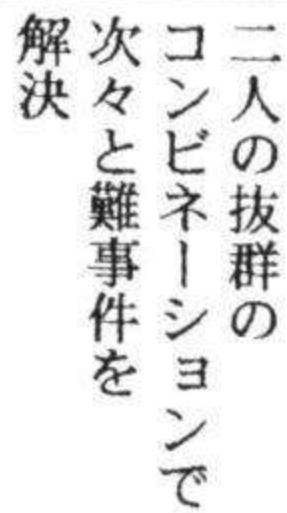 二人の抜群の
コンビネーションで
次々と難事件を
解決